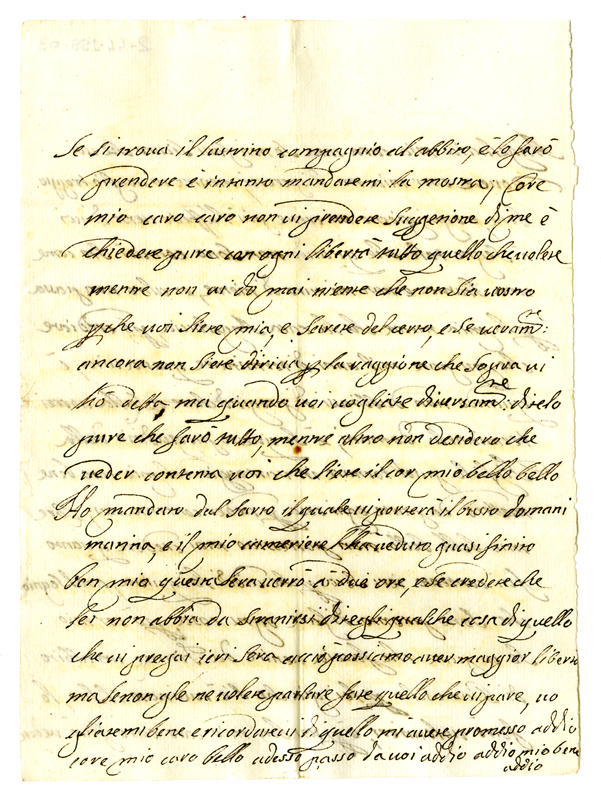 Se si trova il lustrino compagnio al abbito, è lo farò
prendere è intanto mandatemi la mostra, Core
mio caro caro non vi prendete suggenione di me è
chiedete pure con ogni libertà tutto quello che volete
mentre non vi do mai niente che non sia vostro
perche voi siete mia, e sarete del certo, e se veram:te
ancora non siete di la raggione che sopra vi
ho detta, ma quando voi vogliate diversam:te ditelo
pure che farò tutto, mentre altro non desidero che
veder contenta voi che siete il cor mio bello bello
Ho mandato dal sarto il quale vi porterà il busto domani
matina, e il mio cameriere l'hà veduto quasi finito
ben mio questa sera verrò ai due ore, e se credete che
lei non abbia da ditegli qualche cosa di quello
che vi pregai ieri sera acciò possiamo aver maggior libertà
ma se non gle ne volete parlare fate quello che vi pare, vo
gliatemi bene e ricordatevi di quello mi avete promesso addio
core mio caro bello adesso passo da voi addio addio mio bene
addio